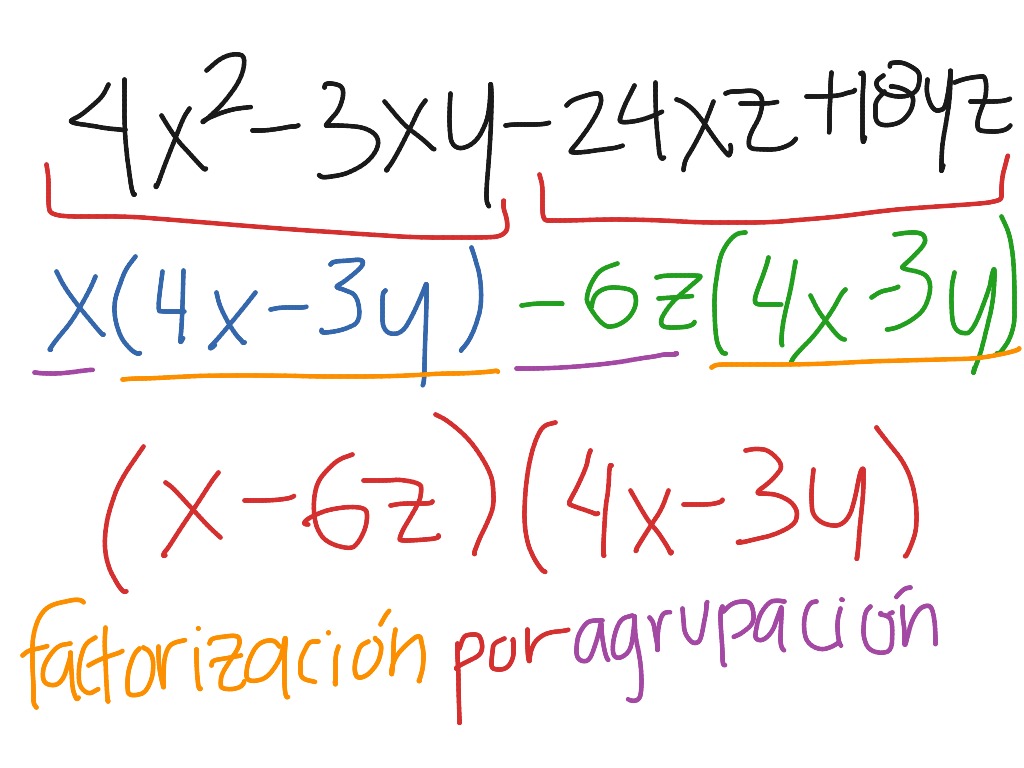 4x² - 3xy - 24xz + 18yz
x(4x - 3y) - 6z(4x - 3y)
(x - 6z)(4x - 3y)
factorización por agrupación